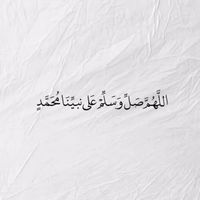 اللَّهُمَّ صَلِّ وَسَلِّمْ عَلَى نَبِيِّنَا مُحَمَّدٍ